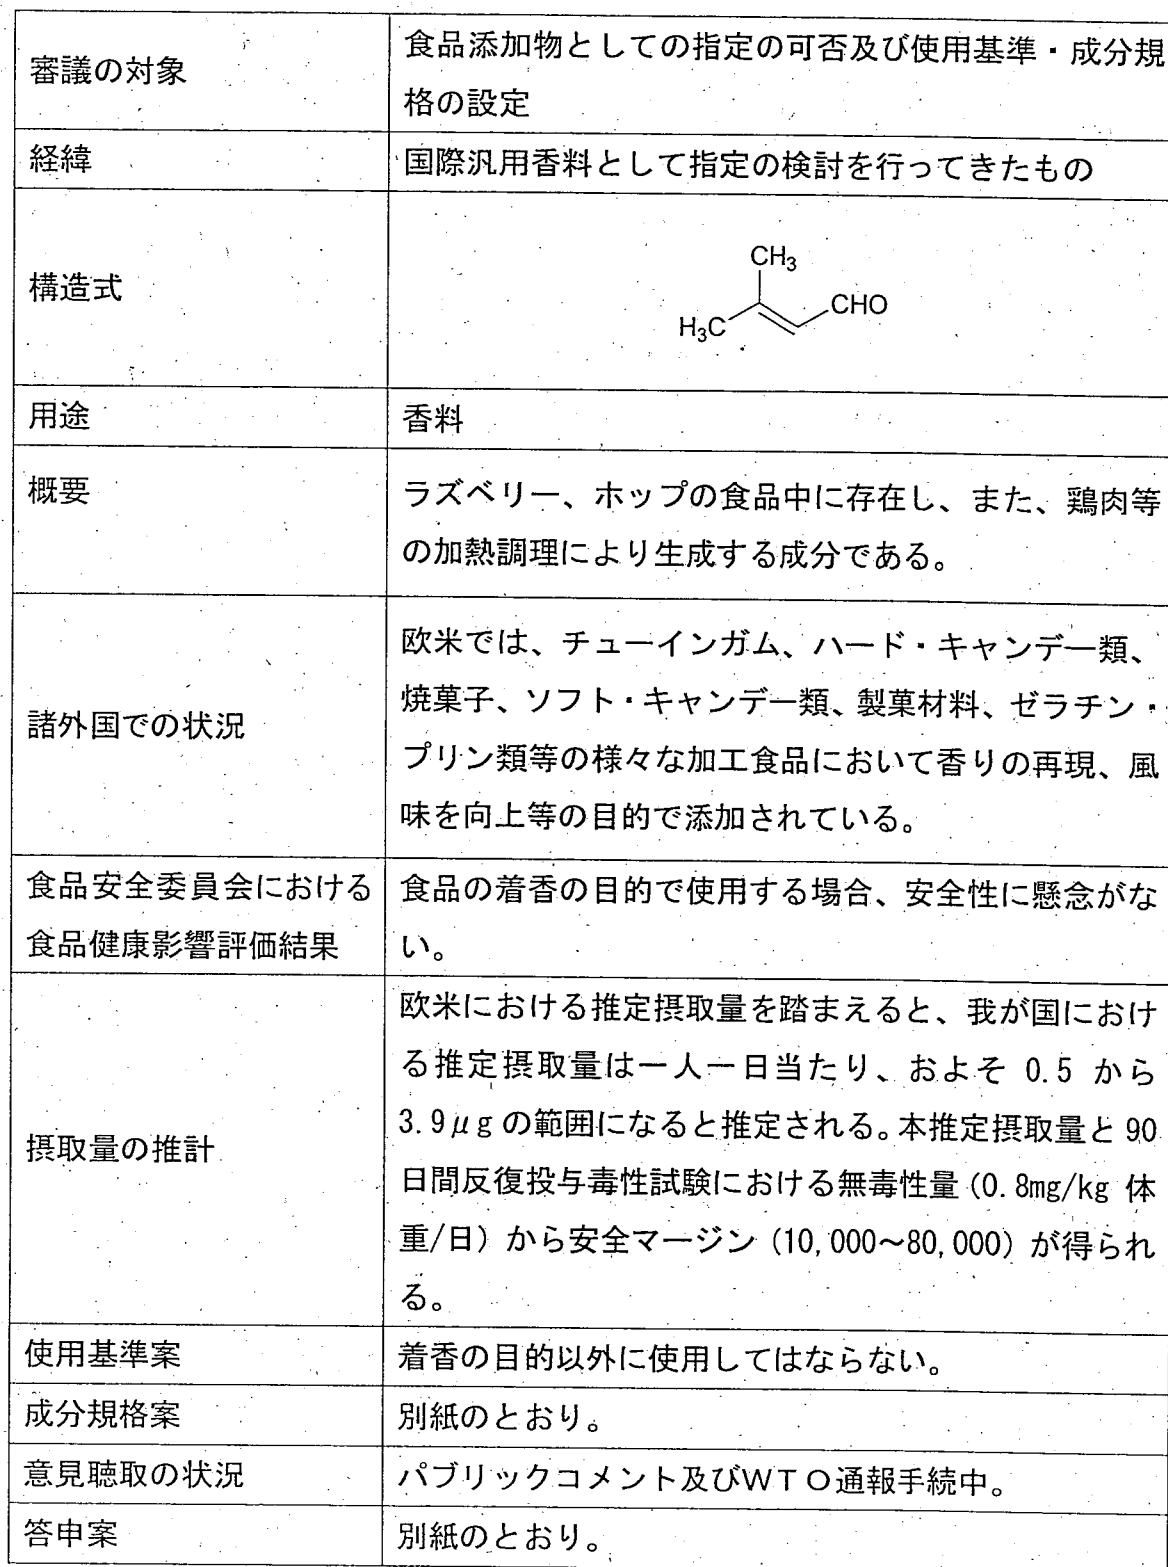 審議の対象
食品添加物としての指定の可否及び使用基準・成分規
格の設定
経緯
国際汎用香料として指定の検討を行ってきたもの
構造式
CH3
H3C
CHO
用途
香料
概要
ラズベリー、ホップの食品中に存在し、また、鶏肉等
の加熱調理により生成する成分である。
諸外国での状況
欧米では、チューインガム、ハード・キャンデー類、
焼菓子、ソフト・キャンデー類、製菓材料、ゼラチン・
プリン類等の様々な加工食品において香りの再現、風
味を向上等の目的で添加されている。
食品安全委員会における
食品健康影響評価結果
食品の着香の目的で使用する場合、安全性に懸念がな
い。
摂取量の推計
欧米における推定摂取量を踏まえると、我が国におけ
る推定摂取量は一人一日当たり、およそ 0.5 から
3.9μgの範囲になると推定される。本推定摂取量と 90
日間反復投与毒性試験における無毒性量(0.8mg/kg 体
重/日)から安全マージン(10,000~80,000)が得られ
る。
使用基準案
着香の目的以外に使用してはならない。
成分規格案
別紙のとおり。
意見聴取の状況
パブリックコメント及びWTO通報手続中。
答申案
別紙のとおり。